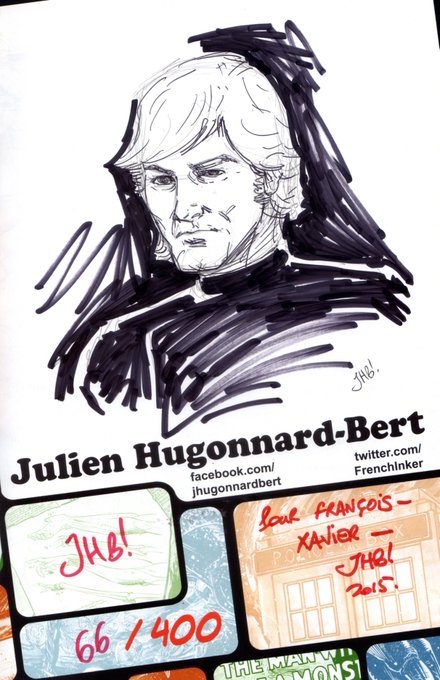 JHB!
Julien Hugonnard-Bert
facebook.com/
jhugonnardbert
twitter.com/
FrenchInker
JHB!
Pour FRANÇOIS-
XAVIER —
JHB!
2015.
66 / 400
THE MAN WI